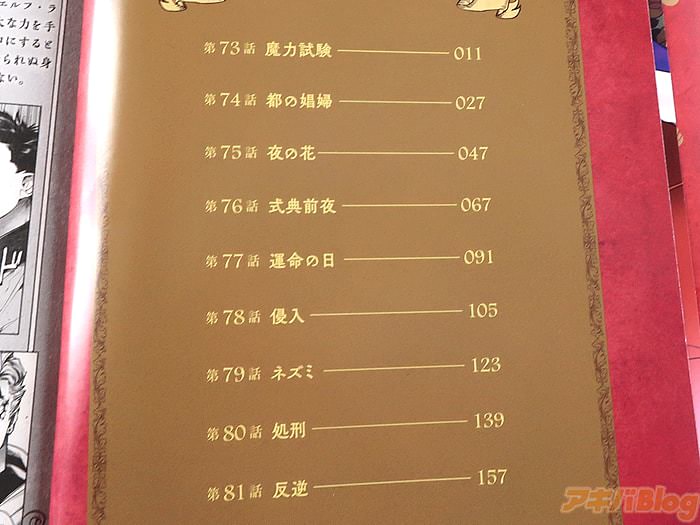 エルフ・ラ
大な力を手
中にすると
られぬ身
ない。
第73話 魔力試験 011
第74話 都の娼婦 027
第75話 夜の花 047
第76話 式典前夜 067
第77話 運命の日 091
第78話 侵入 105
第79話 ネズミ 123
第80話 処刑 139
第81話 反逆 157
アキバBlog